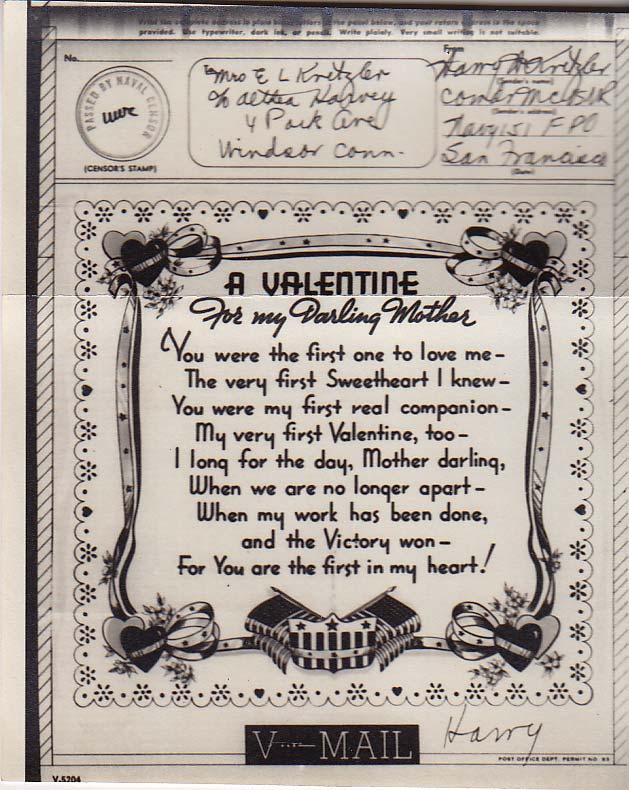 Print the complete address in plain block letters in the panel below, and your return address in the space
provided. Use typewriter, dark ink, or pencil. Write plainly. Very small writing is not suitable.
No.
PASSED BY NAVAL CENSOR
(CENSOR'S STAMP)
To
Mrs E L Kretzler
c/o Althea Harvey
4 Park Ave
Windsor Conn.
From
Kretzler
(Sender's name)
(Sender's address)
Navy 151 FPO
San Francisco
(Date)
A VALENTINE
For my Darling Mother
You were the first one to love me–
The very first Sweetheart I knew–
You were my first real companion–
My very first Valentine, too–
I long for the day, Mother darling,
When we are no longer apart–
When my work has been done,
and the Victory won–
For You are the first in my heart!
Harry
V···—MAIL
POST OFFICE DEPT. PERMIT NO. 93
V-5204